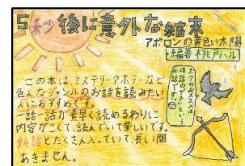 5秒後に意外な結末
アポロンの黄色い太陽
編著 桃戸ハル
この本は、ミステリーやホラーなど
色んなジャンルのお話を読みたい
人におすすめです。
一話一話が素早く読めるわりに
内容がこくて、読んでいて楽しいです。
94話とたくさん入っていて、長い間
あきません。